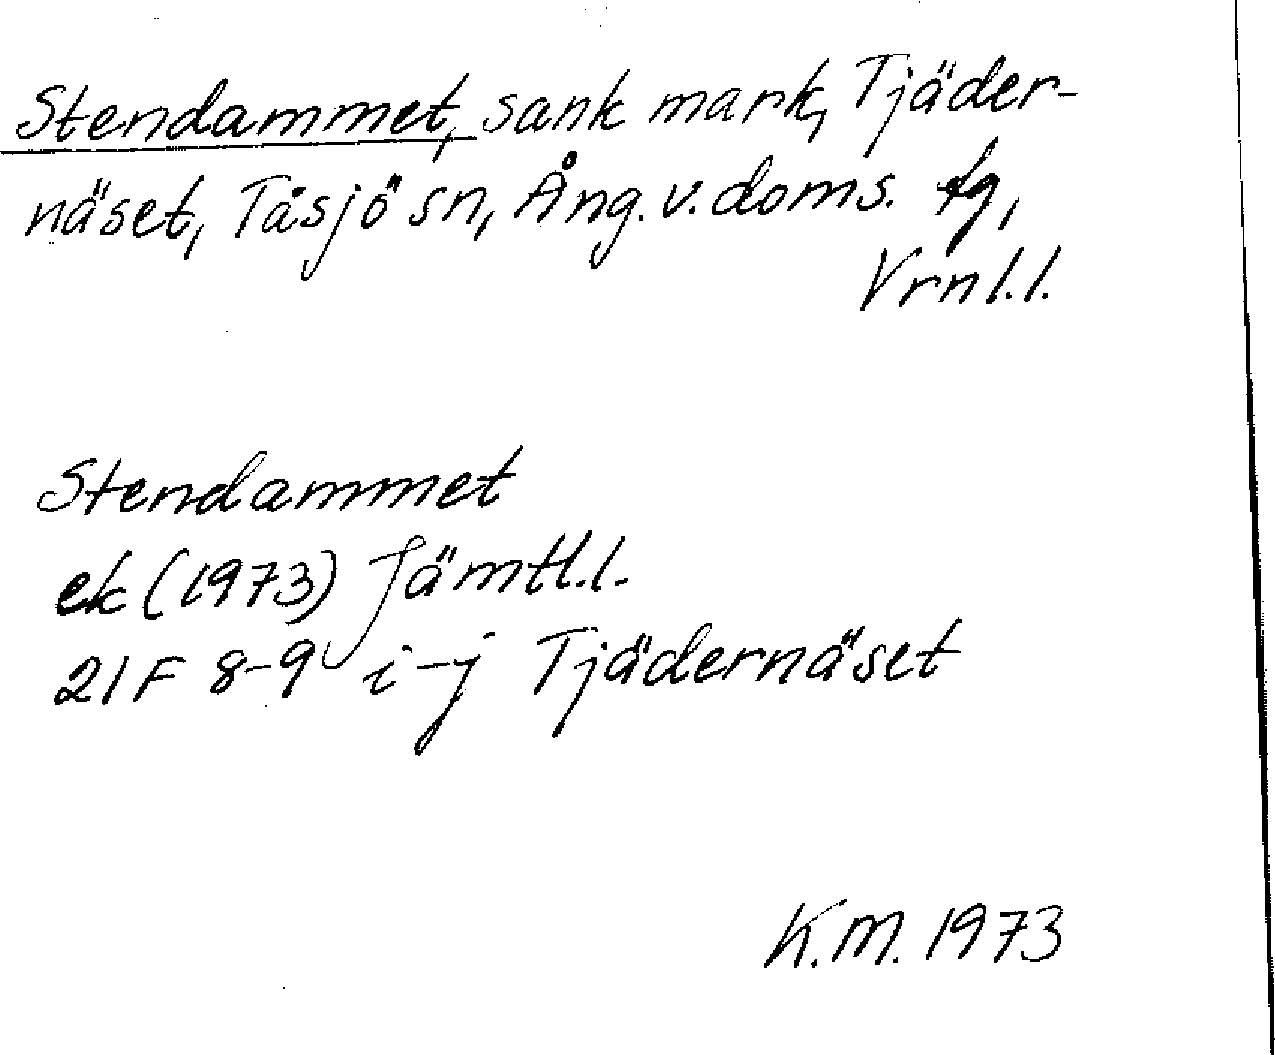 Stendammet, sank mark, Tjäder-
näset, Tåsjö sn, Ång. v. doms. tg,
Vrnl.l.
Stendammet
ek (1973) Jämtl.l.
21F 8-9 i-j Tjädernäset
K.M. 1973